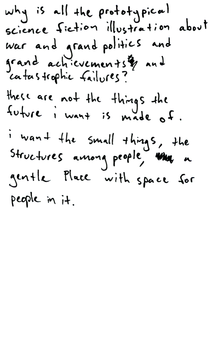 why is all the prototypical
science fiction illustration about
war and grand politics and
grand achievements, and
catastrophic failures?
these are not the things the
future i want is made of.
i want the small things, the
structures among people, a
gentle Place with space for
people in it.